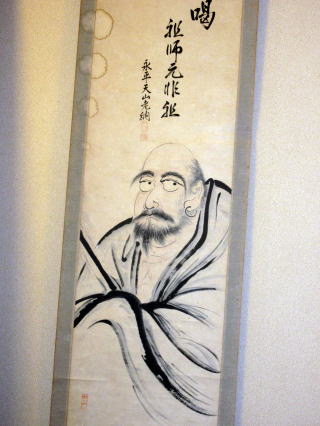 喝
祖師元非祖
永平天山老衲